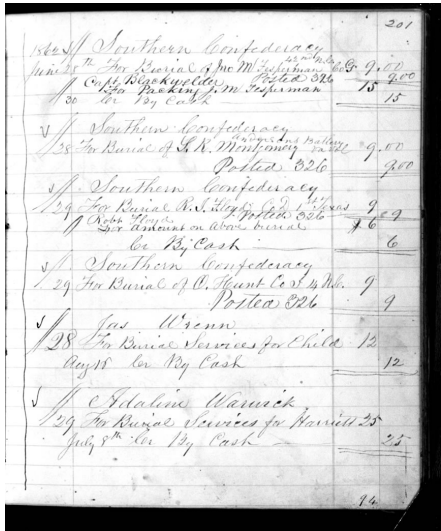 201
1862 Southern Confederacy
June 28th For Burial of Jno M Tesperman 42nd N.C. Co G 9.00
Capt. Blackwelder Posted 326 9.00
For Packing J. M Tesperman 15
30 Cr By Cash 15
Southern Confederacy
28 For Burial of S. R. Montgomery Battery 9.00
Posted 326 9.00
Southern Confederacy
29 For Burial R. S. Floyd Co D 1st Texas 9
Robt Floyd Posted 326 9
For amount on above burial 6
Cr By Cash 6
Southern Confederacy
29 For Burial of C. Hunt Co I 4 N.C. 9
Posted 326 9
Jas Wrenn
28 For Burial Services for Child 12
Aug 18 Cr By Cash 12
Adaline Warwick
29 For Burial Services for Harriett 25
July 8th Cr By Cash 25
94